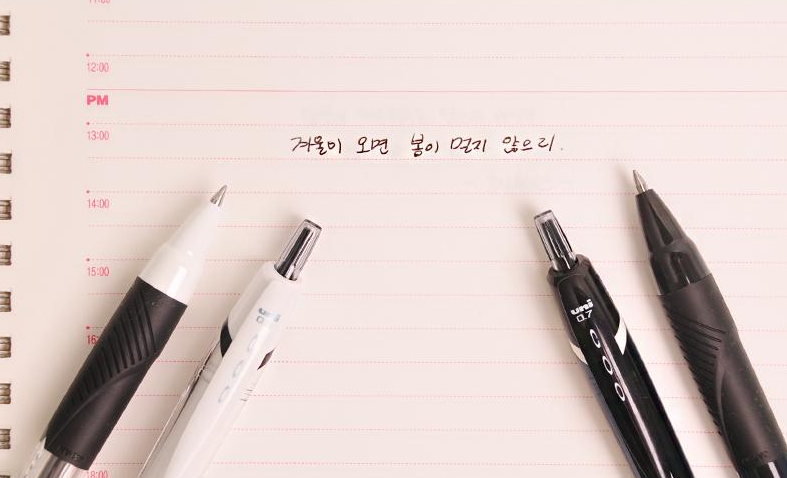 12:00
PM
13:00
겨울이 오면 봄이 멀지 않으리.
14:00
15:00
uni
uni
0.7
18:00